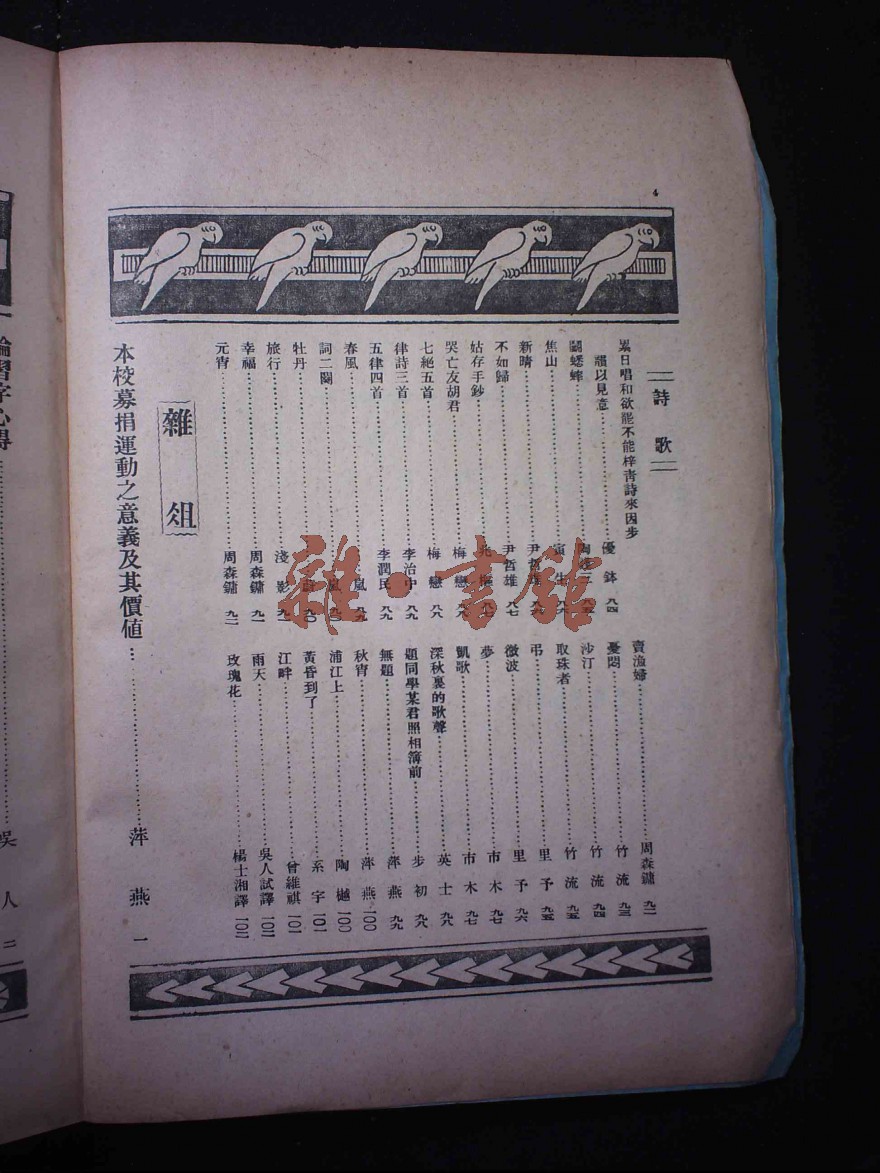 4
詩歌
累日唱和欲罷不能梓靑詩來因步
韻以見意 優鉢 八四
鬭蟋蟀
焦山
新晴 尹哲雄
不如歸 尹哲雄 八七
姑存手鈔
哭亡友胡君 梅戀 八八
七絕五首 梅戀 八八
律詩三首 李治中 八九
五律四首 李潤民 八九
春風 嵐 八九
詞二闋
牡丹 九〇
旅行 淺影 九一
幸福 周森鏞 九一
元宵 周森鏞 九二
賣漁婦 周森鏞 九二
憂悶 竹流 九三
沙汀 竹流 九四
取珠者 竹流 九五
弔 里予 九五
微波 里予 九六
夢 市木 九七
凱歌 市木 九七
深秋裏的歌聲 英士 九八
題同學某君照相簿前 步初 九八
無題 萍燕 九九
秋宵 萍燕 一〇〇
浦江上 陶樾 一〇〇
黃昏到了 系字 一〇一
江畔 曾維祺 一〇一
雨天 吳人試譯 一〇二
玫瑰花 楊士湘譯 一〇三
雜俎
本校募捐運動之意義及其價値 萍燕 一
論習字心得 人 二
雜·書館